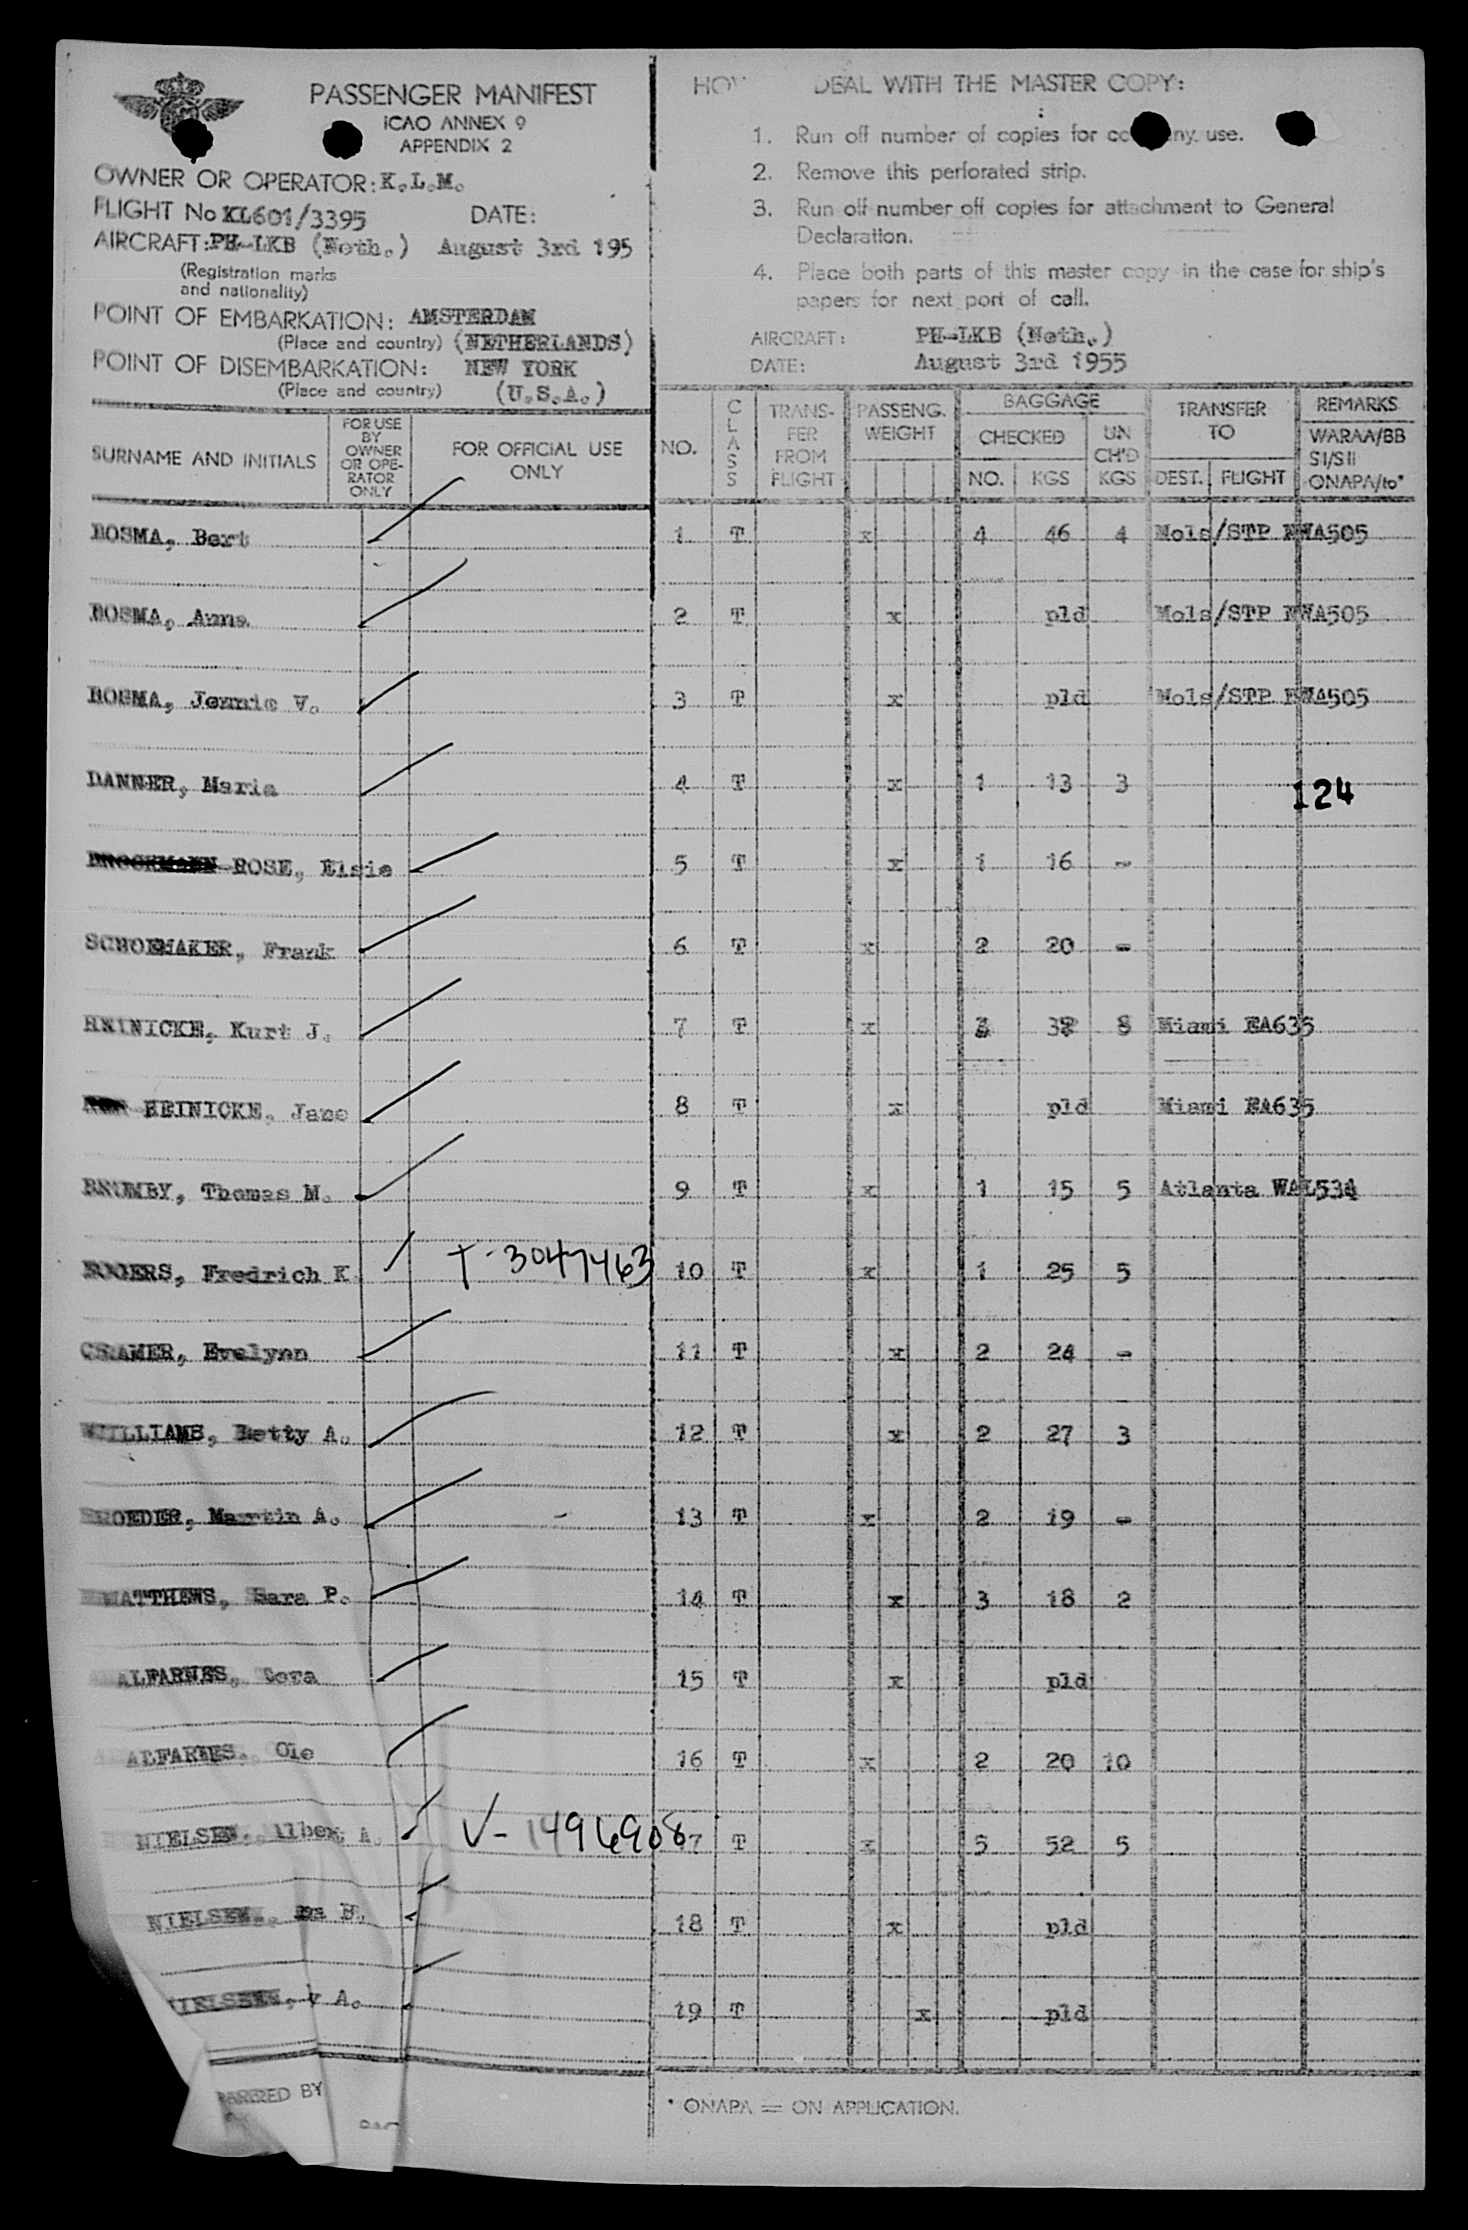 PASSENGER MANIFEST
ICAO ANNEX 9
APPENDIX 2
OWNER OR OPERATOR: K.L.M.
FLIGHT No KL601/3395 DATE:
AIRCRAFT: PH-LKB (Neth.) August 3rd 195
(Registration marks
and nationality)
POINT OF EMBARKATION: AMSTERDAM
(Place and country) (NETHERLANDS)
POINT OF DISEMBARKATION: NEW YORK
(Place and country) (U.S.A.)
DEAL WITH THE MASTER COPY:
1. Run off number of copies for use.
2. Remove this perforated strip.
3. Run off number off copies for attachment to General
Declaration.
4. Place both parts of this master copy in the case for ship's
papers for next port of call.
AIRCRAFT: PH-LKB (Neth.)
DATE: August 3rd 1955
SURNAME AND INITIALS
FOR USE
BY
OWNER
OR OPE-
RATOR
ONLY
FOR OFFICIAL USE
ONLY
NO.
CLASS
TRANS-
FER
FROM
FLIGHT
PASSENG.
WEIGHT
BAGGAGE
CHECKED
NO. KGS
UN
CH'D
KGS
TRANSFER
TO
DEST. FLIGHT
REMARKS
WARAA/BB
SI/SII
ONAPA/to*
BOSMA, Bert 1 T x 4 46 4 Mols/STP NWA505
BOSMA, Anna 2 T x pld Mols/STP NWA505
BOSMA, Jennie V. 3 T x pld Mols/STP NWA505
DANNER, Maria 4 T x 1 13 3
124
ROSE, Elsie 5 T x 1 16 -
SCHOEMAKER, Frank 6 T x 2 20 -
HEINICKE, Kurt J. 7 T x 8 Miami EA635
HEINICKE, Jane 8 T x pld Miami EA635
BRUMBY, Thomas M. 9 T x 1 15 5 Atlanta WAL534
ROGERS, Fredrich K T-3047463 10 T x 1 25 5
CRAMER, Evelynn 11 T x 2 24 -
WILLIAMS, Betty A. 12 T x 2 27 3
BROEDER, Martin A. 13 T x 2 19 -
MATTHEWS, Sara P. 14 T x 3 18 2
ALFARNES, Dora 15 T x pld
ALFARNES, Ole 16 T x 2 20 10
NIELSEN, Albert A. V-1496908 17 T x 5 52 5
NIELSEN, B. 18 T x pld
NIELSEN, A. 19 T x pld
PREPARED BY
* ONAPA = ON APPLICATION.